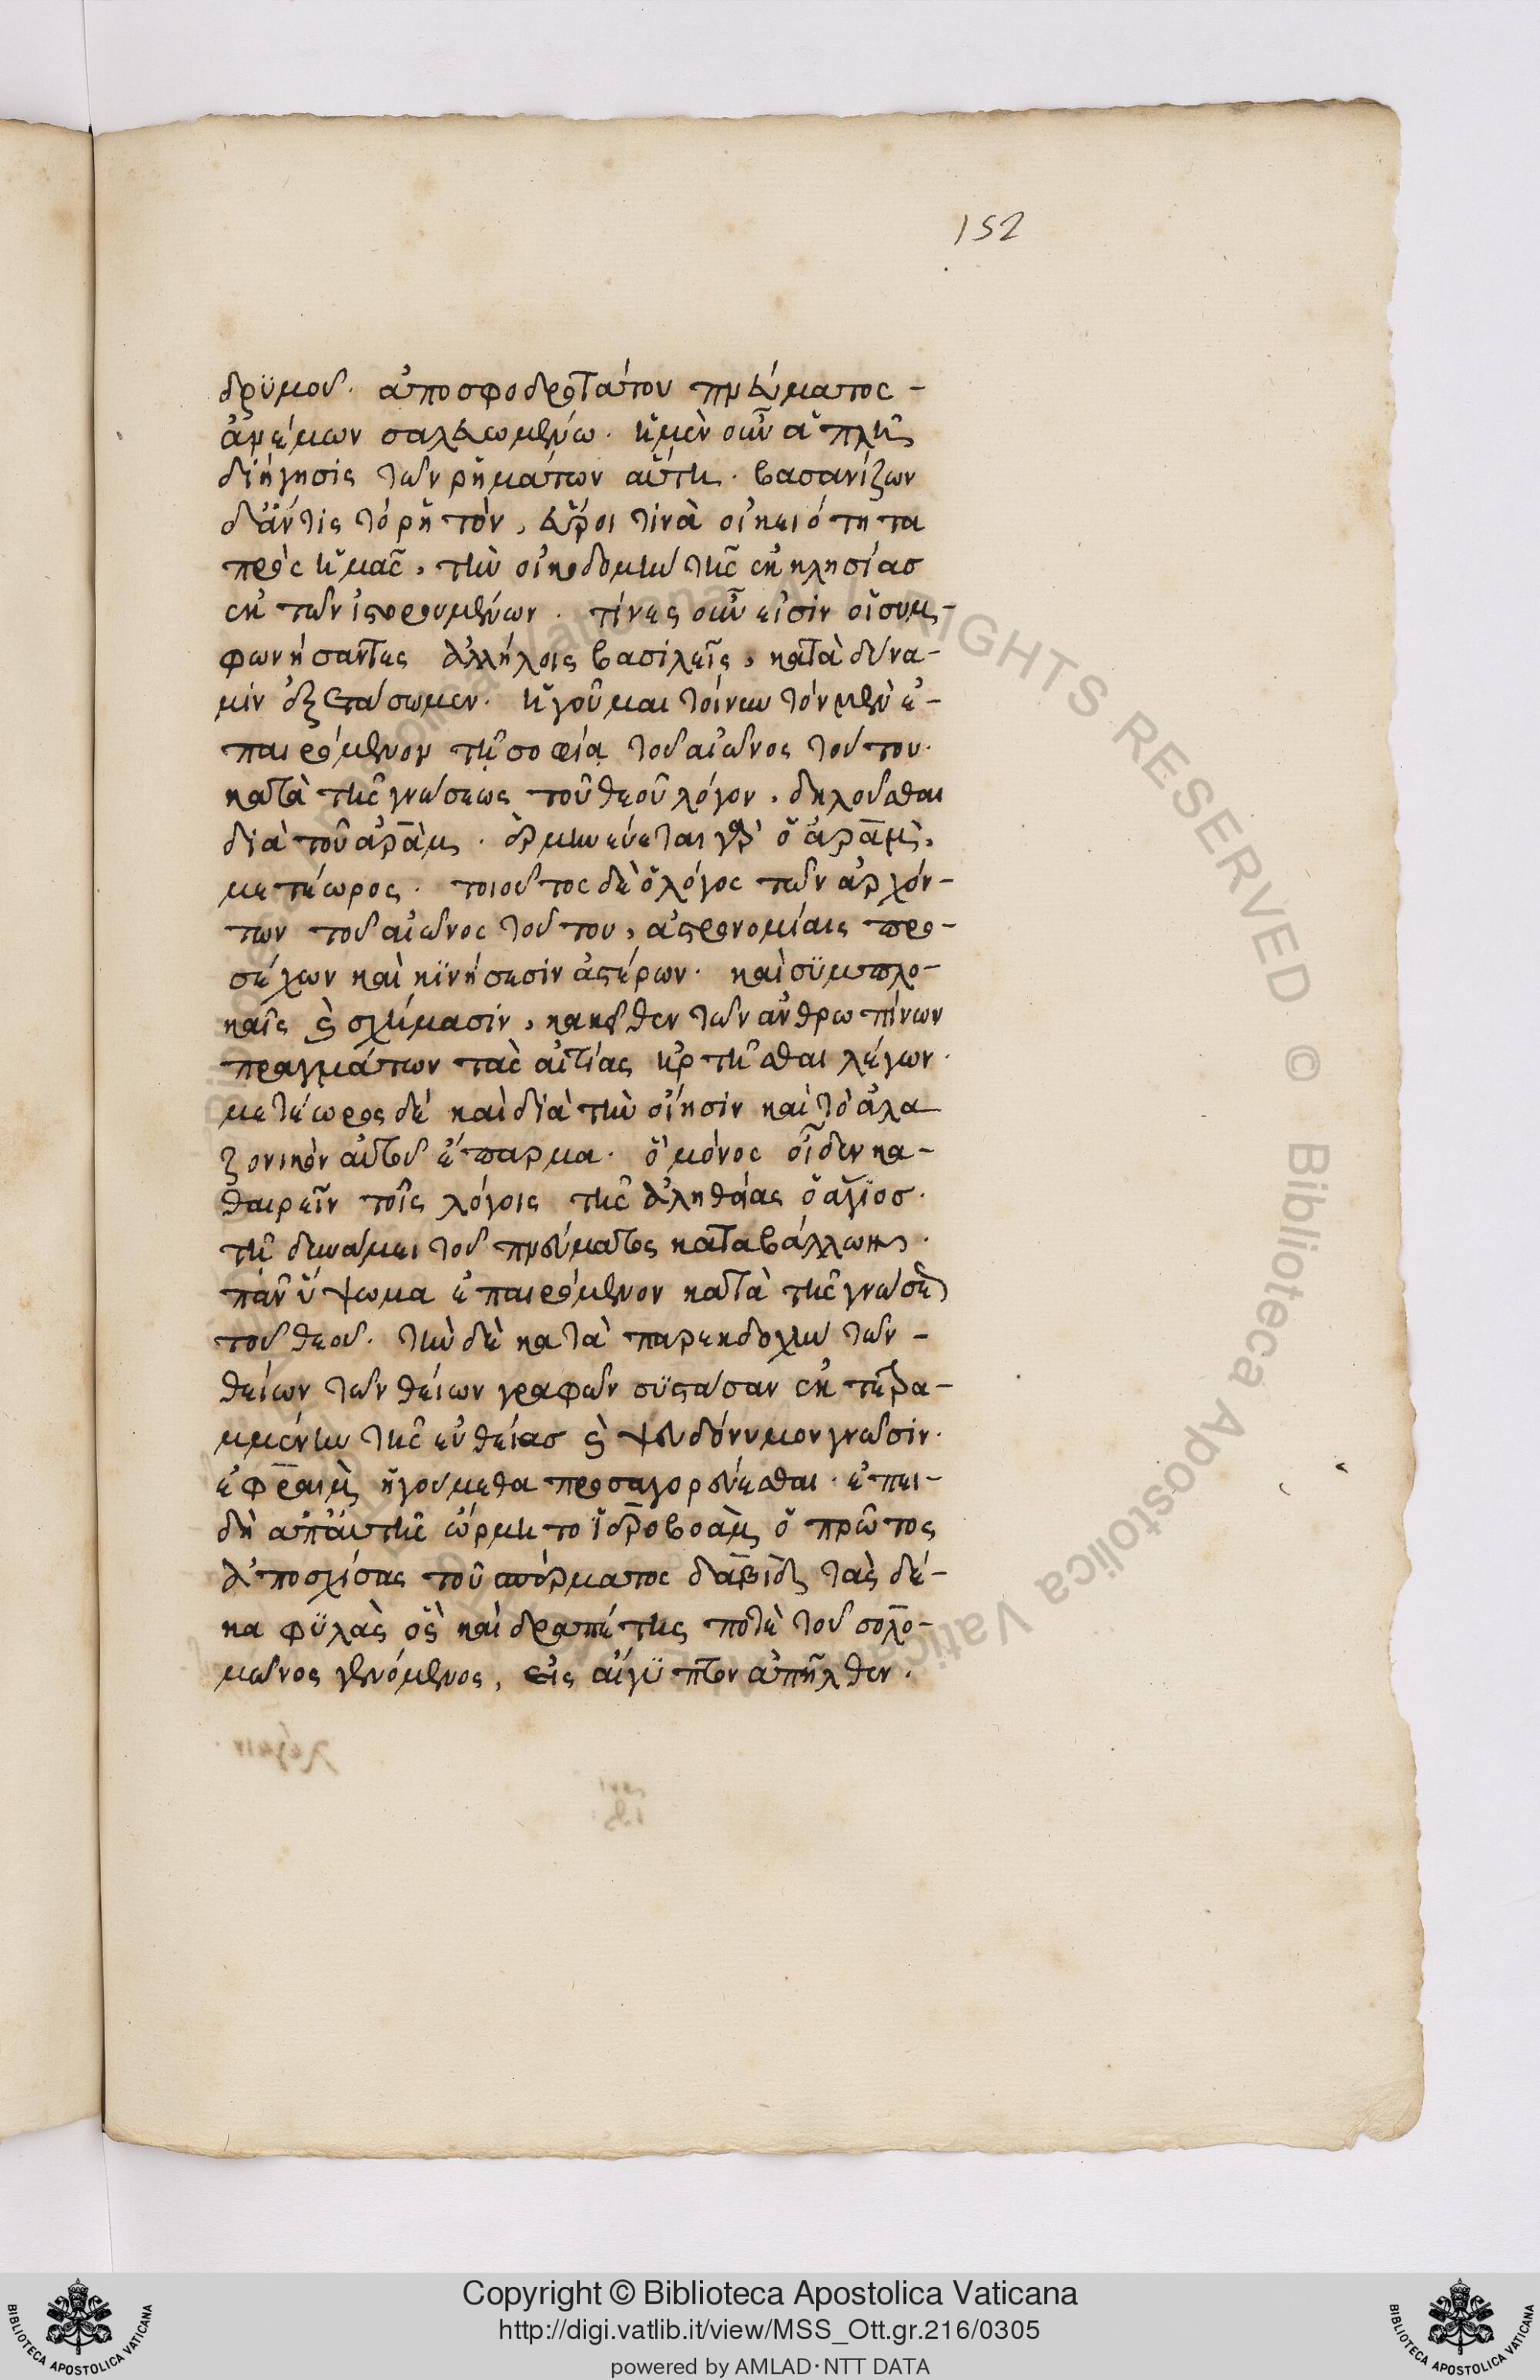 152
δρϋμοῦ· ἀπο σφοδροτάτου πνεύματος -
ἀνέμων σαλευομένω· ἡ μὲν οὖν ἁπλῆ
διήγησις τῶν ρημάτων αὕτη· βασανίζων
δἄν τις τὸ ρητὸν, εὕροι τινὰ οἰκειότητα
πρὸς ἡμᾶς, τὴν οἰκοδομὴν τῆς ἐκκλησίας
ἐκ τῶν ἱστορουμένων· τίνες οὖν εἰσὶν οἱ συμ-
φωνήσαντες ἀλλήλοις βασιλεῖς, κατὰ δύνα-
μιν ἐξετάσωμεν· ἡγοῦμαι τοίνυν τὸν μὲν ἐ-
παιρόμενον τῇ σοφίᾳ τοῦ αἰῶνος τούτου·
κατὰ τῆς γνώσεως τοῦ θεοῦ λόγον, δηλοῦσθαι
διὰ τοῦ ἀρὰμ· ἑρμηνεύεται γὰρ ὁ ἀρὰμ,
μετέωρος· τοιοῦτος δὲ ὁ λόγος τῶν ἀρχόν-
των τοῦ αἰῶνος τούτου, ἀστρονομίαις προ-
σέχων καὶ κϊνήσεσιν ἀστέρων· καὶ σϋμπλο-
καῖς καὶ σχήμασιν, κακεῖθεν τῶν ἀνθρωπίνων
πραγμάτων τὰς αἰτίας ἠρτῆσθαι λέγων·
μετέωρος δὲ καὶ διὰ τὴν οἴησιν καὶ τὸ ἀλα
ζονικὸν αὐτοῦ ἔπαρμα· ὃ μόνος οἶδεν κα-
θαιρεῖν τοῖς λόγοις τῆς ἀληθείας ὁ ἅγϊος·
τῇ δυνάμει τοῦ πνεύματος καταβάλλων·
πᾶν ὕψωμα ἐπαιρόμενον κατὰ τῆς γνώσεως
τοῦ θεοῦ· τὴν δὲ κατὰ παρεκδοχὴν τῶν -
θείων τῶν θείων γραφῶν σϋστᾶσαν ἐκτετρα-
μμένην τῆς εὐθείας καὶ ψευδώνυμον γνῶσιν·
ἐφραὶμ ἡγούμεθα προσαγορεύεσθαι· ἐπει-
δὴ ἀπ' αὐτῆς ὥρμητο ϊεροβοὰμ ὁ πρῶτος
ἀποσχίσας τοῦ σπέρματος δαβὶδ τὰς δέ-
κα φϋλὰς ὃς καὶ δραπέτης ποτὲ τοῦ σολο-
μῶνος γενόμενος, εἰς αἴγϋπτον ἀπῆλθεν·
Copyright © Biblioteca Apostolica Vaticana
http://digi.vatlib.it/view/MSS_Ott.gr.216/0305
powered by AMLAD·NTT DATA